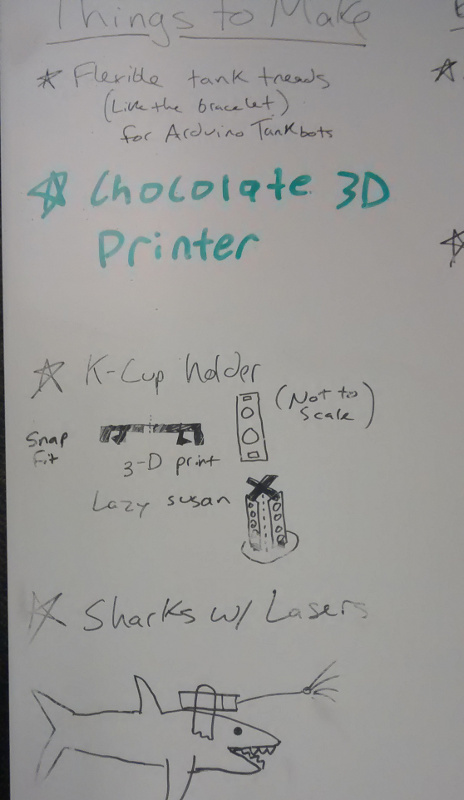 Things to Make
Flexible tank treads
(Like the bracelet)
for Arduino Tankbots
Chocolate 3D
Printer
K-Cup holder
(Not to
Scale)
Snap
Fit
3-D print
Lazy susan
Sharks w/ Lasers